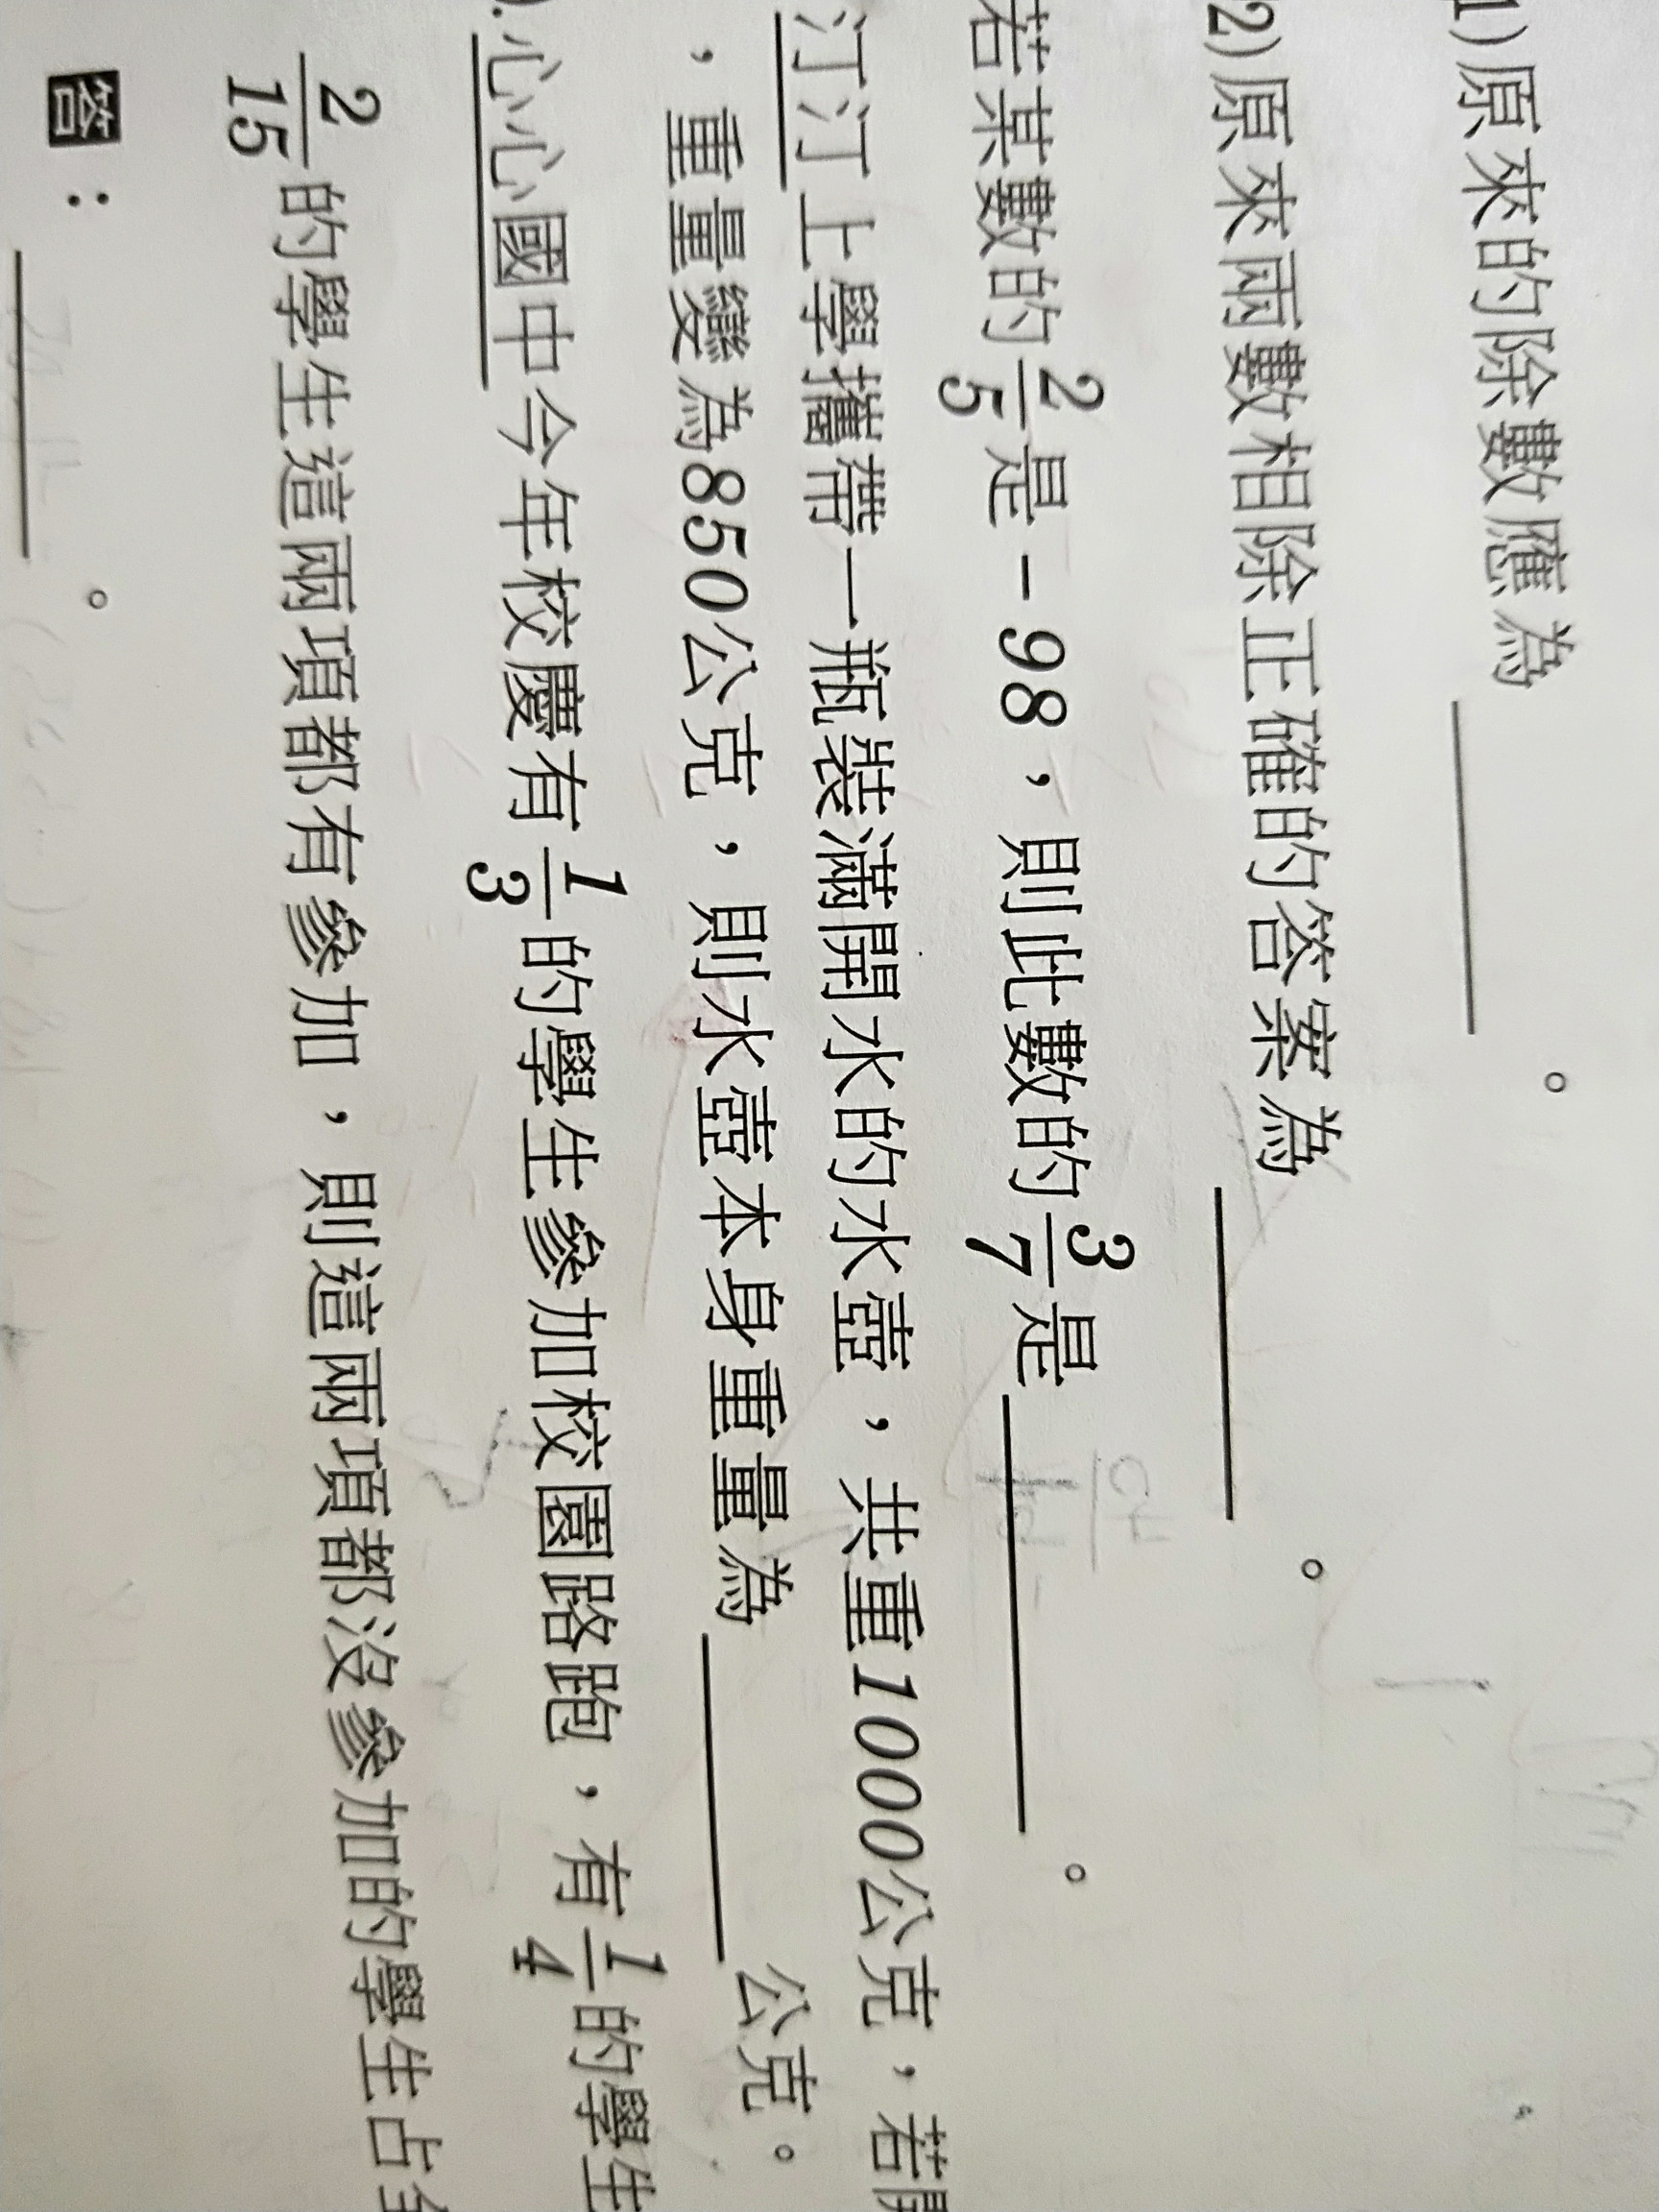 1)原來的除數應為 。
2)原來兩數相除正確的答案為 。
若某數的2/5是-98，則此數的3/7是 。
汀汀上學攜帶一瓶裝滿開水的水壺，共重1000公克，若開
，重量變為850公克，則水壺本身重量為 公克。
).心心國中今年校慶有1/3的學生參加校園路跑，有1/4的學生
2/15的學生這兩項都有參加，則這兩項都沒參加的學生占全
答： 。